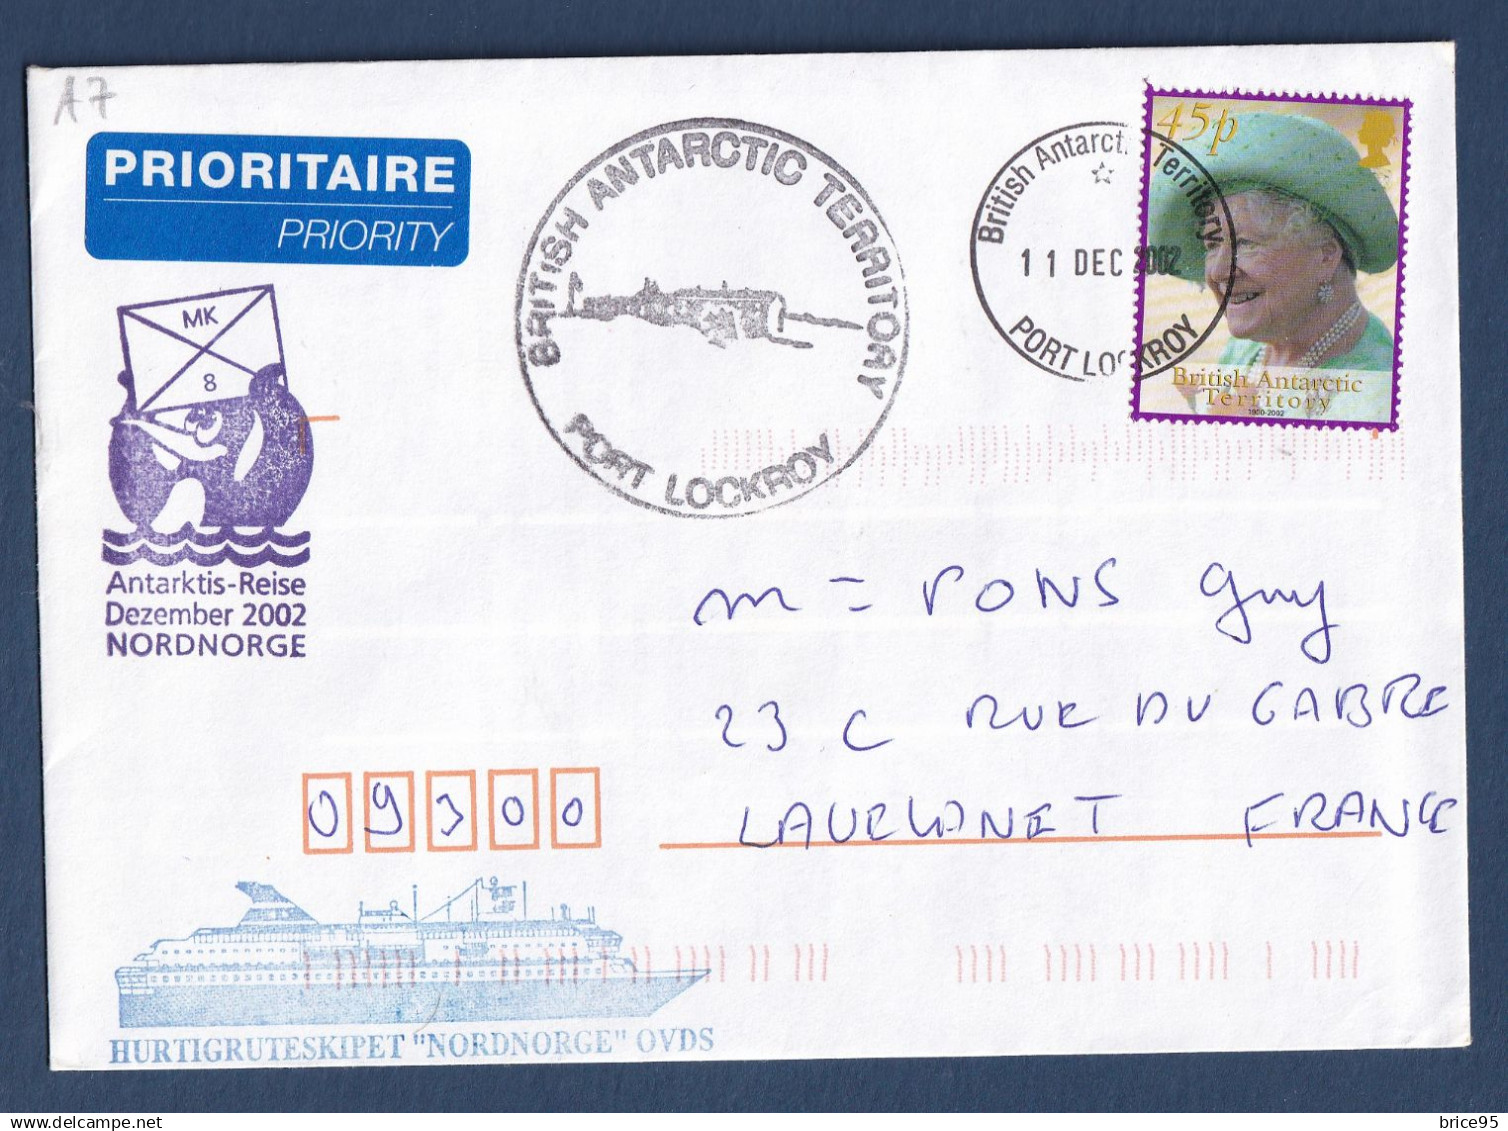 A7
PRIORITAIRE
PRIORITY
MK
8
Antarktis-Reise
Dezember 2002
NORDNORGE
BRITISH ANTARCTIC TERRITORY
PORT LOCKROY
British Antarctic Territory
11 DEC 2002
PORT LOCKROY
45p
British Antarctic
Territory
1900-2002
m = PONS Guy
23 C RUE DU GABRE
09300 LAVELANET FRANCE
HURTIGRUTESKIPET "NORDNORGE" OVDS
delcampe.net
brice95